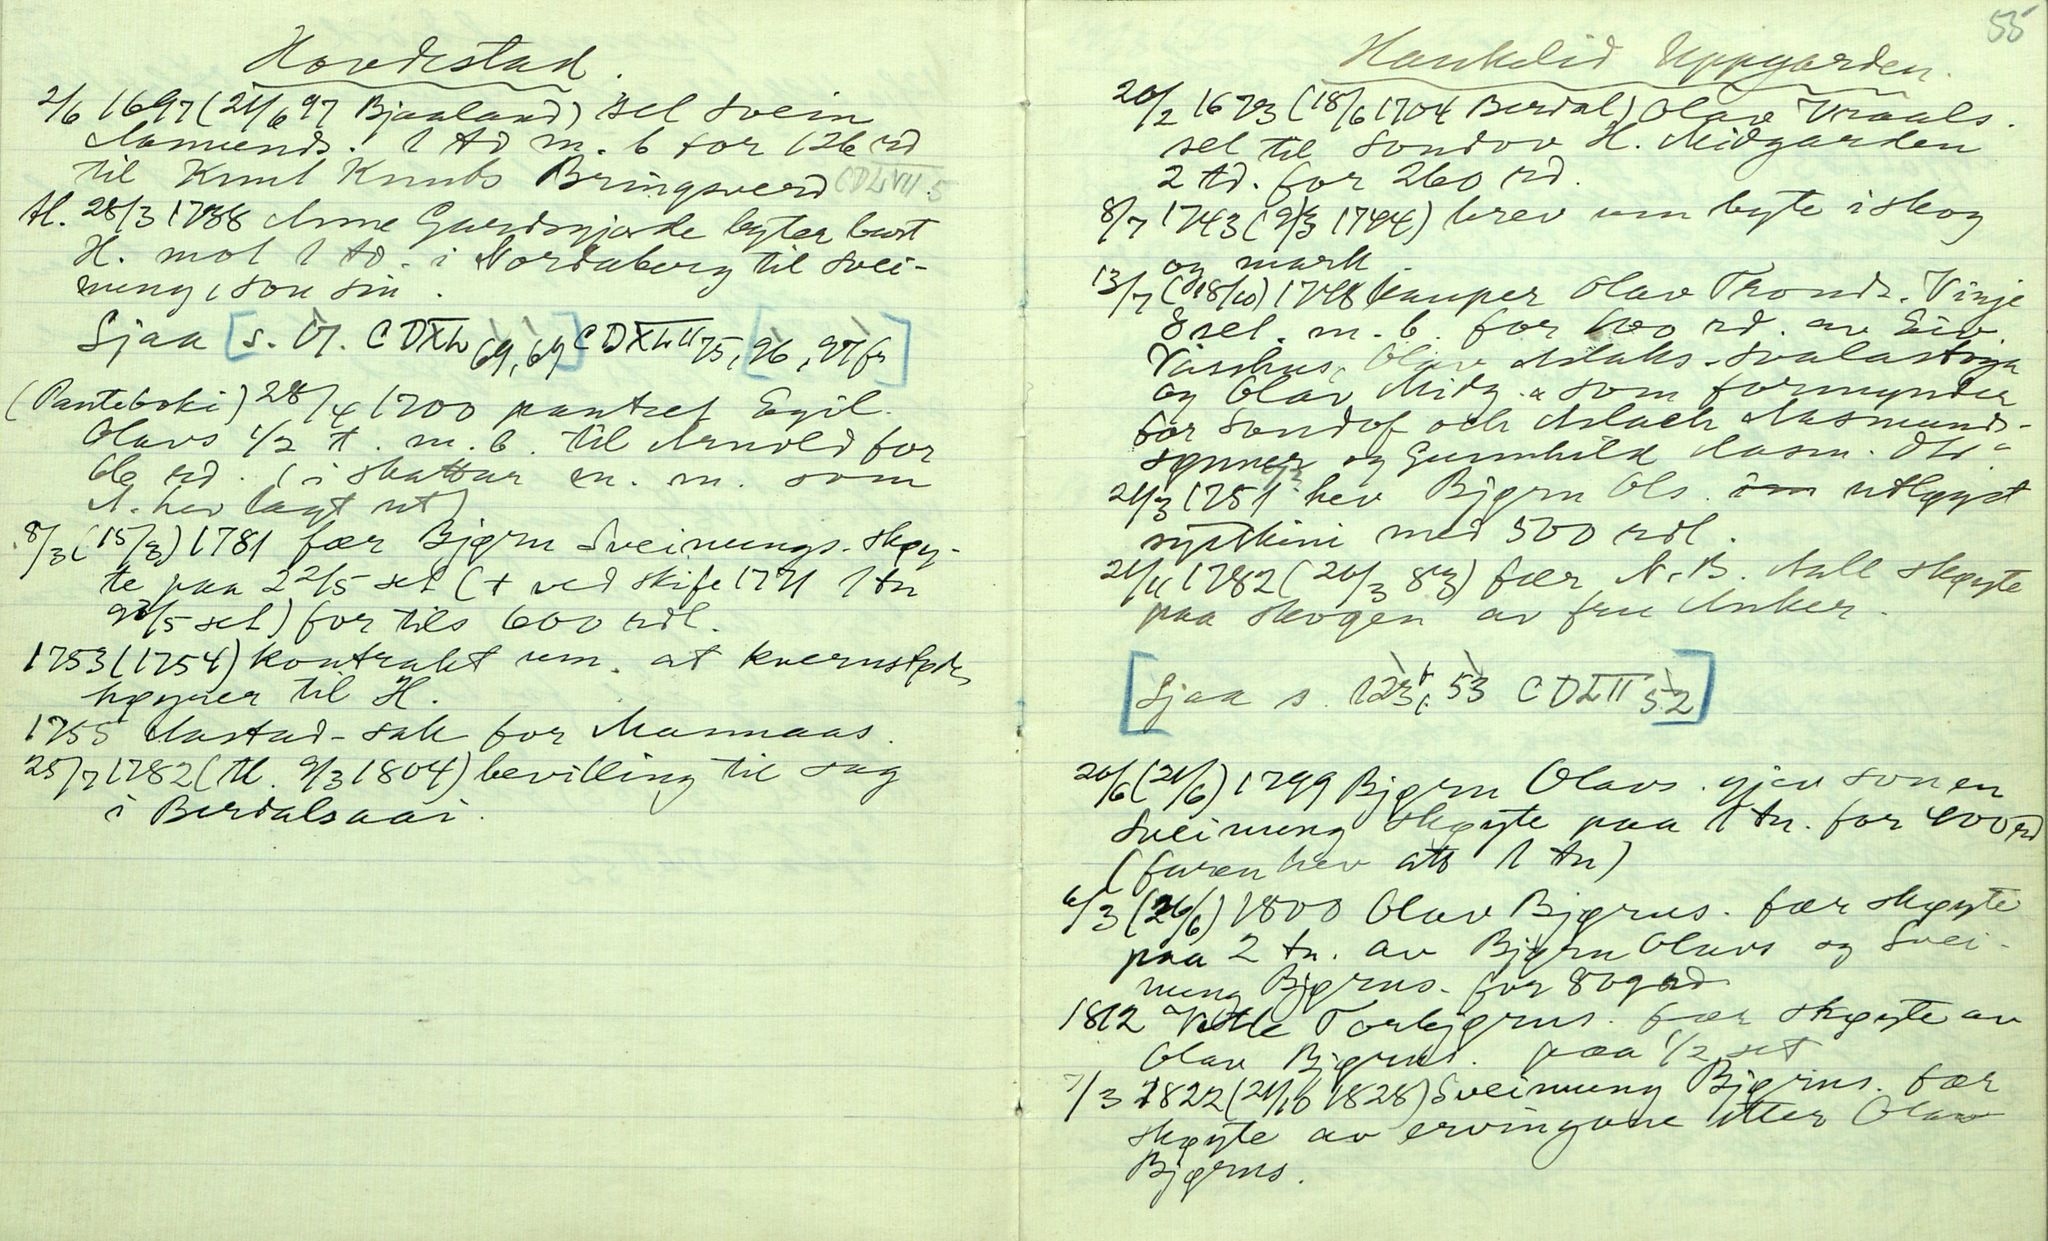 Hovdestad.
2/6 1697 (21/6 97 Bjaaland) sel Svein
Aamunds. 1 td m. b for 126 rd
til Knut Knuts Bringsverd CDLVII 5
Tl. 28/3 1738 Anne Gardsgjorde byter burt
H. mot 1 td. i Nordaberg til Svei-
nung, son sin.
Sjaa [s. 17. CDXL 69, 69] CDXLII 75, [96, 97 fr]
(Panteboki) 28/4 1700 pantset Egil
Olavs 1/2 t. m. b. til Arnold for
66 rd. (i skattar m. m. som
A. hev lagt ut)
8/3 (15/3) 1781 fær Bjørn Sveinungs. skøy-
te paa 2 2/5 set (+ ved skife 1771 1 tn
9 3/5 set) for tils 600 rdl.
1753 (1754) kontrakt um at kvernstødi
høyrer til H.
1755 Aastad-sak for Mannaas.
25/7 1782 (tl. 9/3 1804) bevilling til sag
i Berdalsaai.
55
Haukelid Uppgarden.
20/2 1673 (18/6 1704 Berdal) Olav Kraals.
sel til Sondov H. Midgarden
2 td. for 260 rd.
8/7 1743 (9/3 1744) brev um byte i skog
og mark.
13/7 (18/10) 1748 kauper Olav Tronds. Vinje
8 set. m. b. for 600 rd. av Eiv.
Vaashus, Olav Aslaks. Svalastoga
og Olav Midg. som formynder
for Sondof och Aslach Aasmunds-
sønner og Gunnhild Aasm. dtr
21/3 1751 hev Bjørn Ols. utløyst
syskini med 500 rdl.
21/11 1782 (20/3 83) fær N. B. Aall skøyte
paa skogen av fru Anker.
[Sjaa s. 123, 53 CDLII 52]
20/6 (21/6) 1799 Bjørn Olavs. gjev sonen
Sveinung skøyte paa 1 tn. for 400 rd
(furen hev att 1 tn)
6/3 (26/6) 1800 Olav Bjørns. fær skøyte
paa 2 tn. av Bjørn Olavs og Svei-
nung Bjørns. for 809 rd
1812 Vetle Torbjørns. fær skøyte av
Olav Bjørns. paa 1/2 set
7/3 1822 (21/10 1828) Sveinung Bjørns. fær
skøyte av ervingane etter Olav
Bjørns.